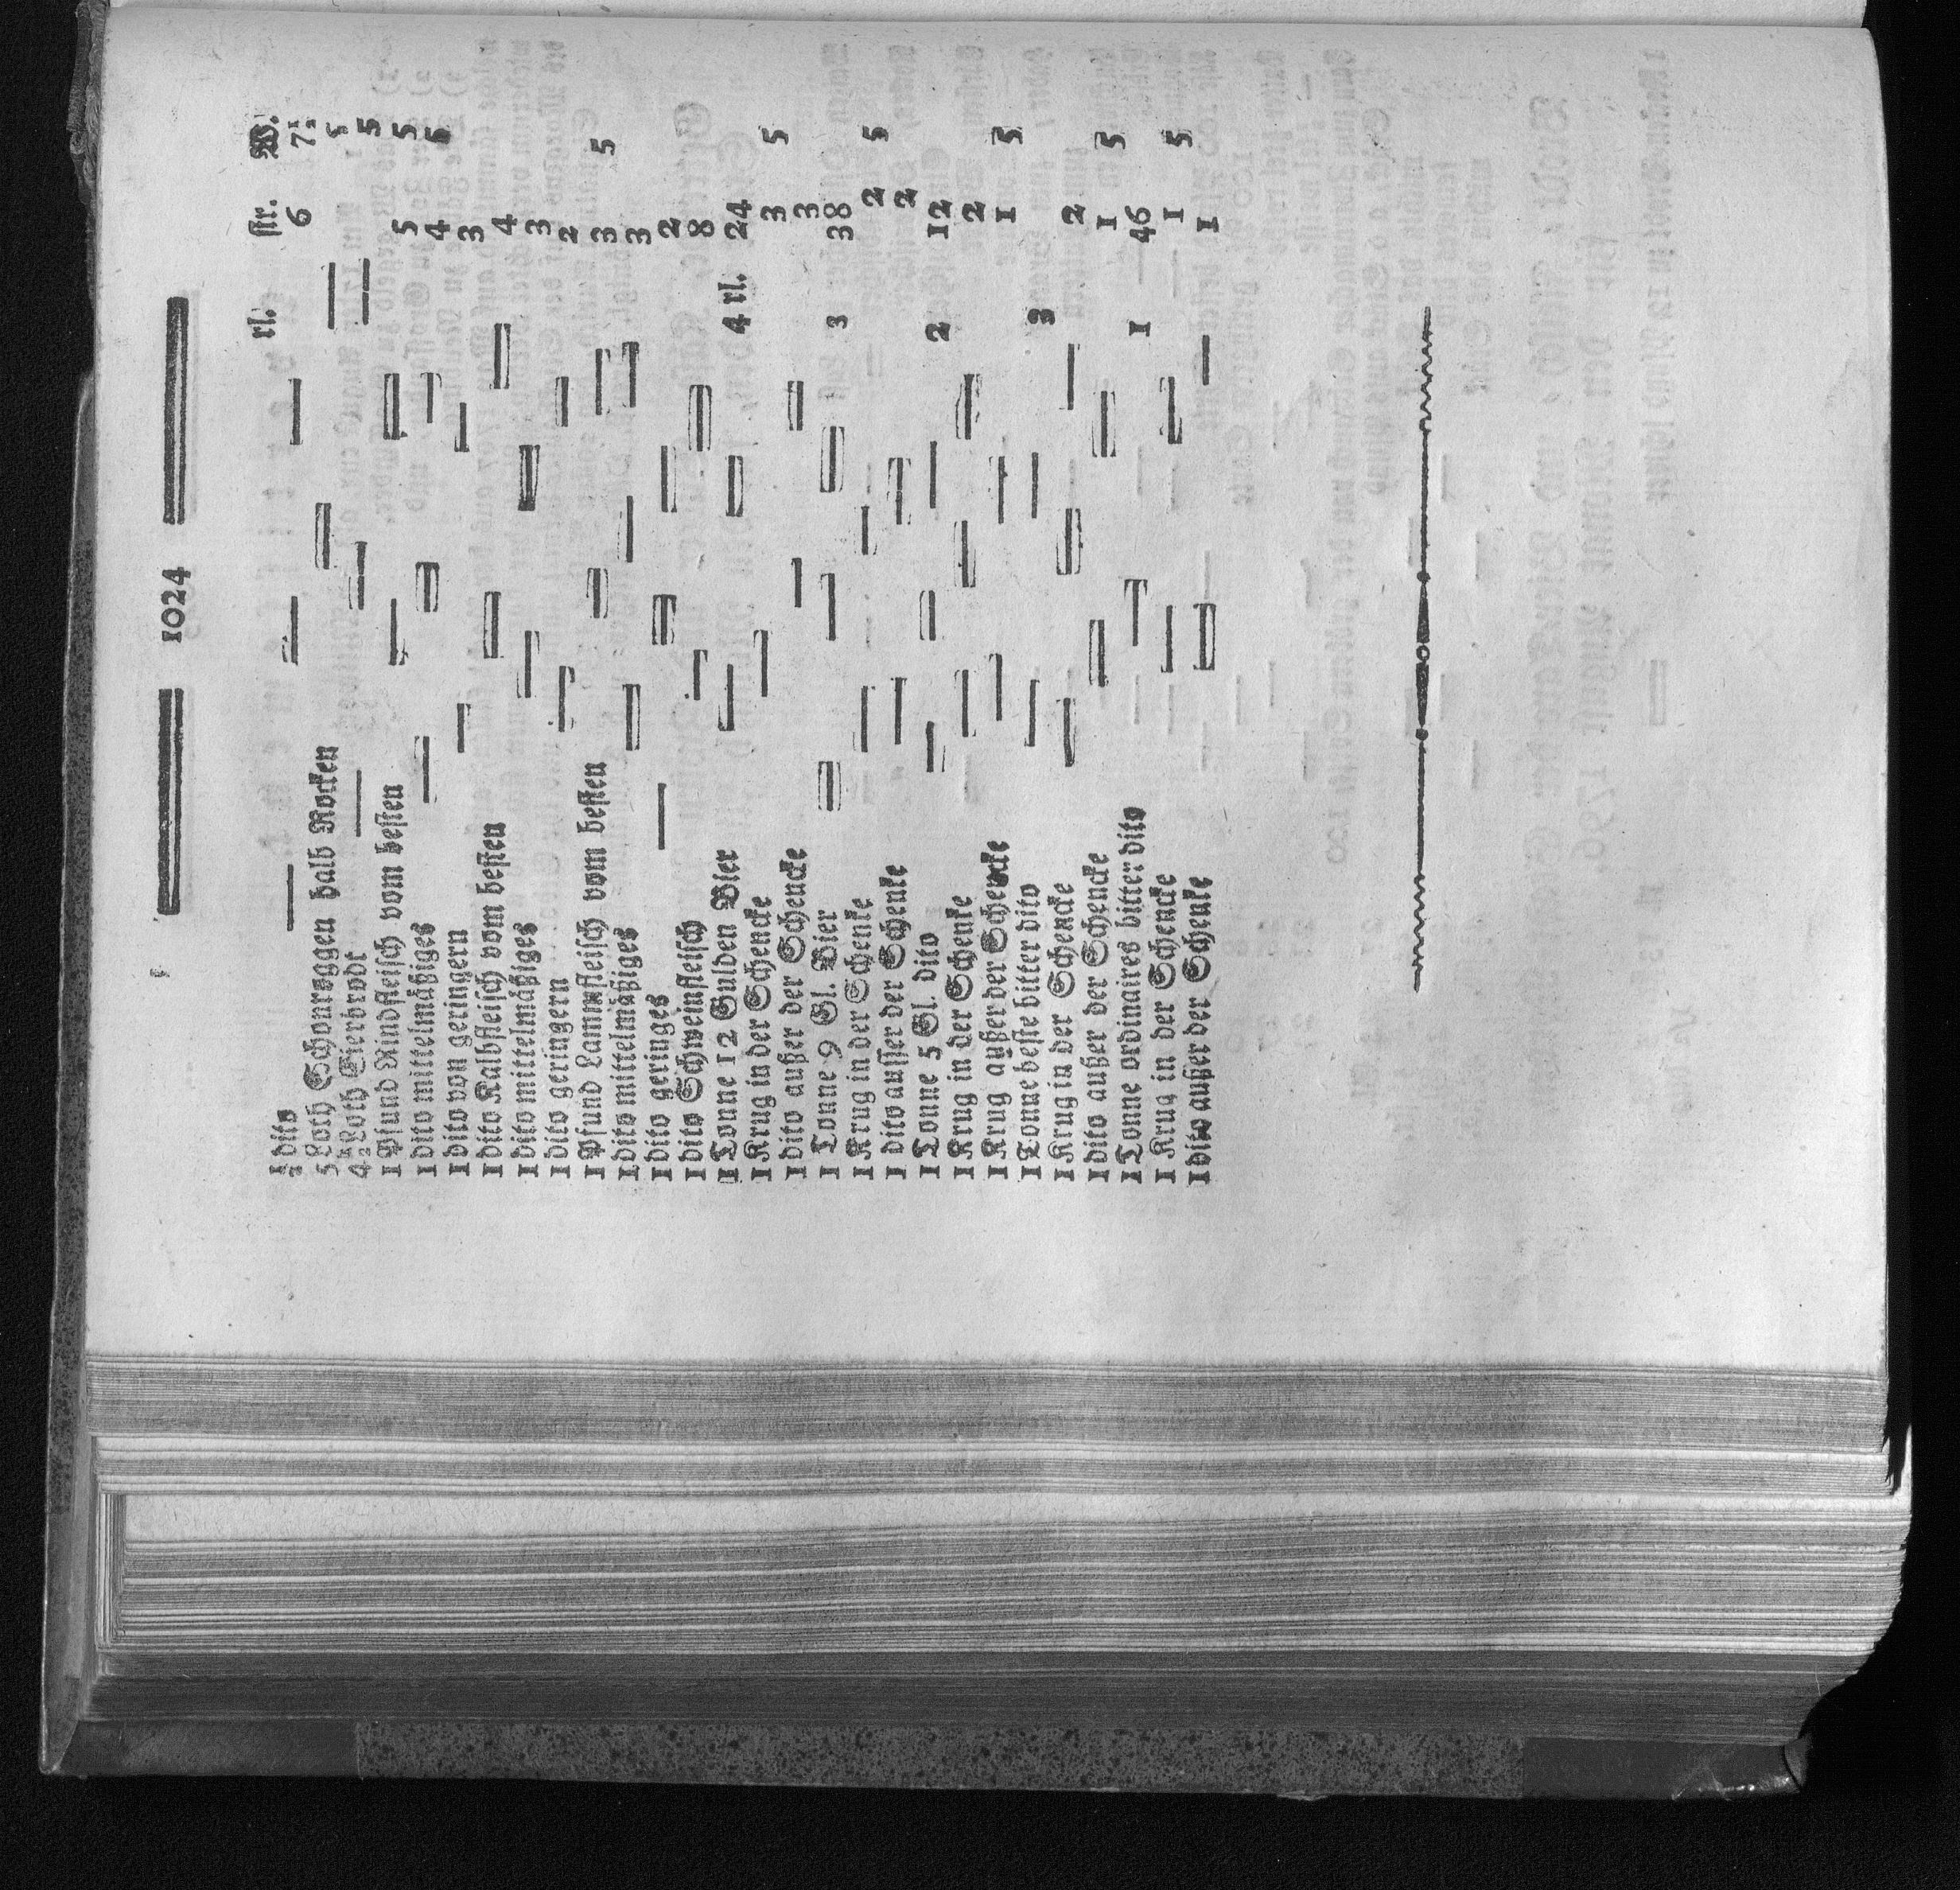 1024
rl. ſtr. W.
½ dito — — — 6 7½
5 Loth Schonroggen halb Rocken — — 5
4½ Loth Bierbrodt — — — 5
1 Pfund Rindfleiſch vom beſten — — 5 5
1 dito mittelmäßiges — — — 4 5
1 dito von geringern — — 3
1 dito Kalbfleiſch vom beſten — — 4
1 dito mittelmäßiges — — 3
1 dito geringern — — 2
1 Pfund Lammfleiſch vom beſten — — 3 5
1 dito mittelmäßiges — — — 3
1 dito geringes — — — 2
1 dito Schweinfleiſch — — 8
1 Tonne 12 Gulden Bier — — 4 rl. 24
1 Krug in der Schencke — 3 5
1 dito außer der Schencke — — 3
1 Tonne 9 Gl. Bier — — — 3 38
1 Krug in der Schenke — — 2 5
1 dito auſſer der Schenke — — 2
1 Tonne 5 Gl. dito — — — 2 12
1 Krug in der Schenke — — — 2
1 Krug außer der Schencke — — 1 5
1 Tonne beſte bitter dito — — 3
1 Krug in der Schencke — — — 2
1 dito außer der Schencke — — 1 5
1 Tonne ordinaires bitter dito — 1 46
1 Krug in der Schencke — — 1 5
1 dito außer der Schenke — — 1